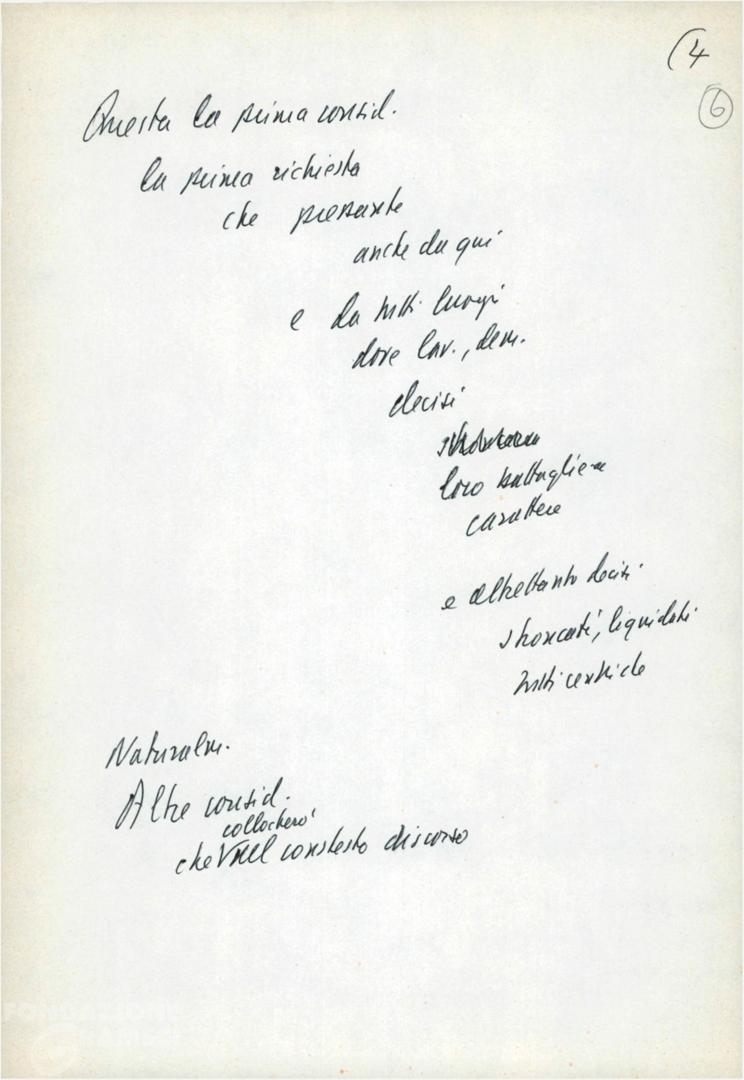 (4
6
Questa la prima consid.
la prima richiesta
che presente
anche da qui
e da tutti luoghi
dove lav., dem.
decisi
loro battaglie
carattere
e altrettanto decisi
stroncati, liquidati
tutti centri de
Naturalm.
Altre consid.
collocherò
che nel contesto discorso
FONDAZIONE
GRAMSCI